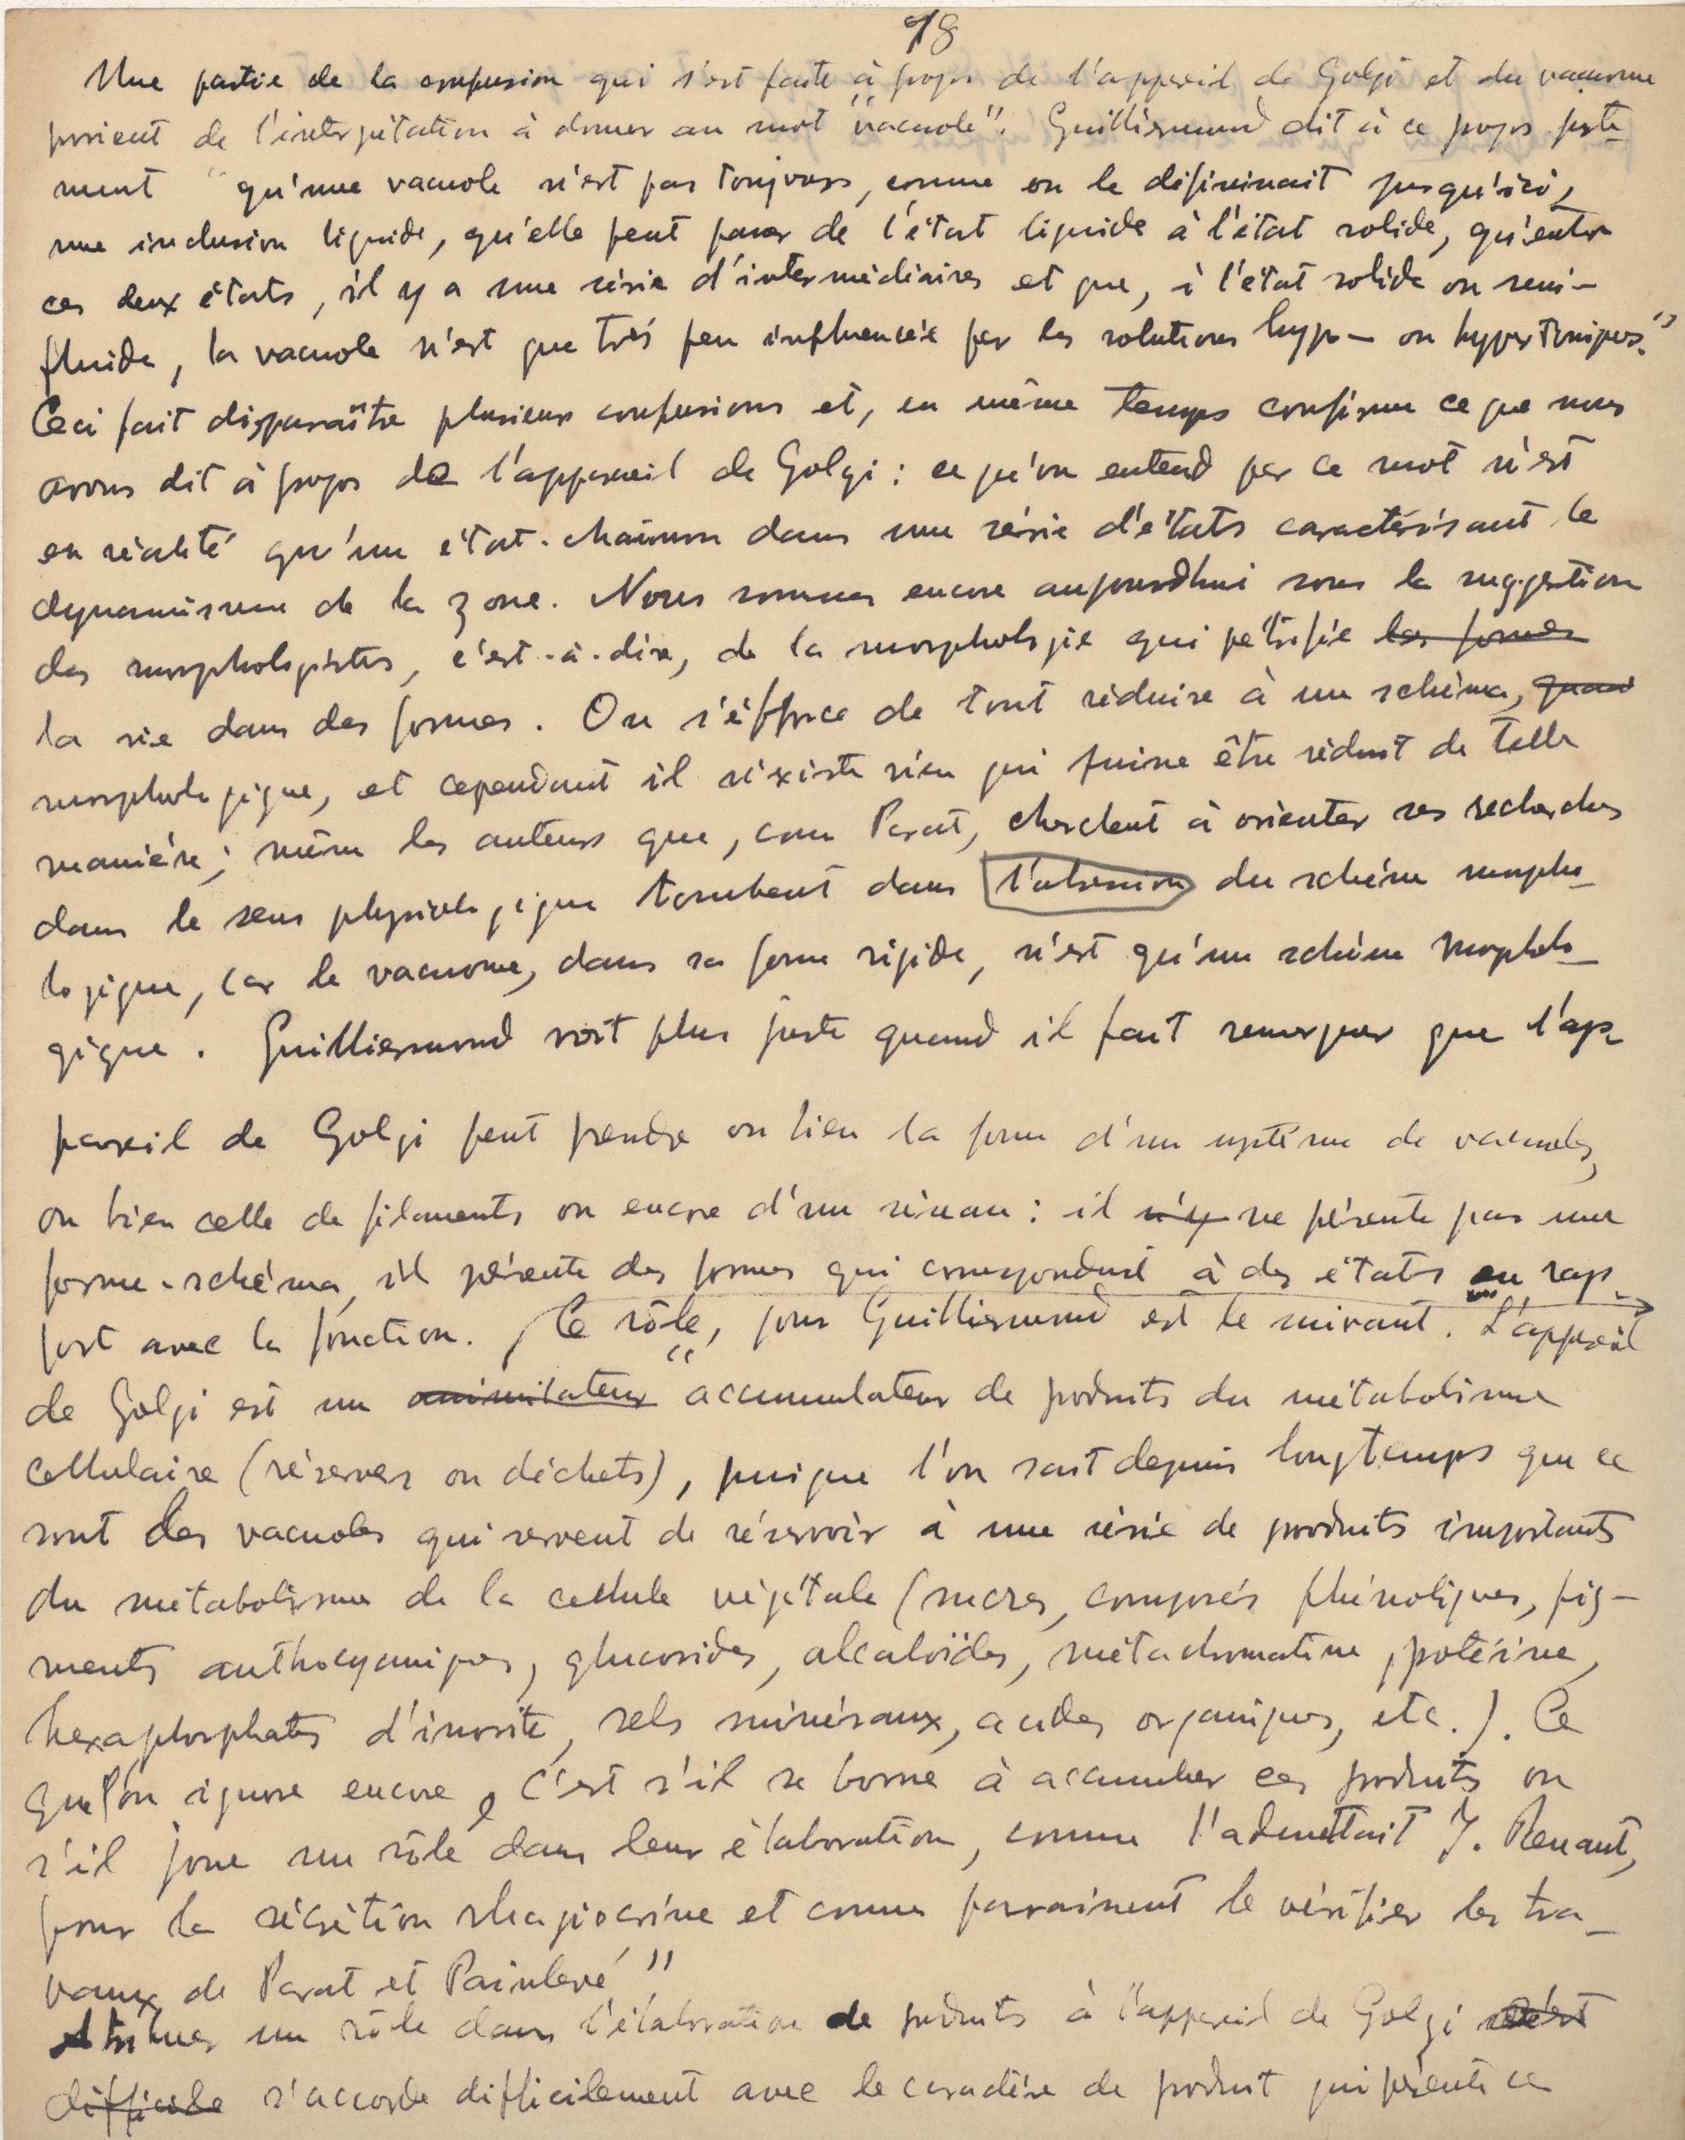 78
Une partie de la confusion qui s'est faite à propos de l'appareil de Golgi et du vacuome
provient de l'interprétation à donner au mot "vacuole". Guilliermond dit à ce propos juste
ment "qu'une vacuole n'est pas toujours, comme on le définissait jusqu'ici,
une inclusion liquide, qu'elle peut passer de l'état liquide à l'état solide, qu'entre
ces deux états, il y a une série d'intermédiaires et que, à l'état solide ou semi-
fluide, la vacuole n'est que très peu influencée par les solutions hypo- ou hypertoniques."
Ceci fait disparaître plusieurs confusions et, en même temps confirme ce que nous
avons dit à propos de l'appareil de Golgi : ce qu'on entend par ce mot n'est
en réalité qu'un état-chaînon dans une série d'états caractérisant le
dynamisme de la zone. Nous sommes encore aujourd'hui sous la suggestion
des morphologistes, c'est-à-dire, de la morphologie qui pétrifie les formes
la vie dans des formes. On s'éfforce de tout réduire à un schéma, quasi
morphologique, et cependant il n'existe rien qui puisse être réduit de telle
manière ; même les auteurs que, com Parat, cherchent à orienter ses recherches
dans le sens physiologique tombent dans l'obsession du schéma morpho-
logique, car le vacuome, dans sa forme rigide, n'est qu'un schéma morpholo-
gique. Guilliermond voit plus juste quand il fait remarquer que l'ap-
pareil de Golgi peut prendre ou bien la forme d'un système de vacuoles,
ou bien celle de filaments ou encore d'un réseau : il n'y ne présente pas une
forme-schéma, il présente des formes qui correspondent à des états en rap-
port avec la fonction. Ce rôle, pour Guilliermond est le suivant. "L'appareil
de Golgi est un assimilateur accumulateur de produits du métabolisme
cellulaire (réserves ou déchets), puique l'on sait depuis longtemps que ce
sont des vacuoles qui servent de réservoir à une série de produits importants
du métabolisme de la cellule végétale (sucres, composés phénoliques, pig-
ments anthocyaniques, glucosides, alcaloïdes, métachromatine, protéine,
hexaphosphates d'inosite, sels minéraux, acides organiques, etc.). Ce
que l'on ignore encore, c'est s'il se borne à accumuler ces produits ou
s'il joue un rôle dans leur élaboration, comme l'admettait J. Renaut,
pour la sécrétion rhagiocrine et comme pourraient le vérifier les tra-
vaux de Parat et Painlevé"
Attribuer un rôle dans l'élaboration de produits à l'appareil de Golgi n'est
difficile s'accorde difficilement avec le caractère de produit qui présente ce